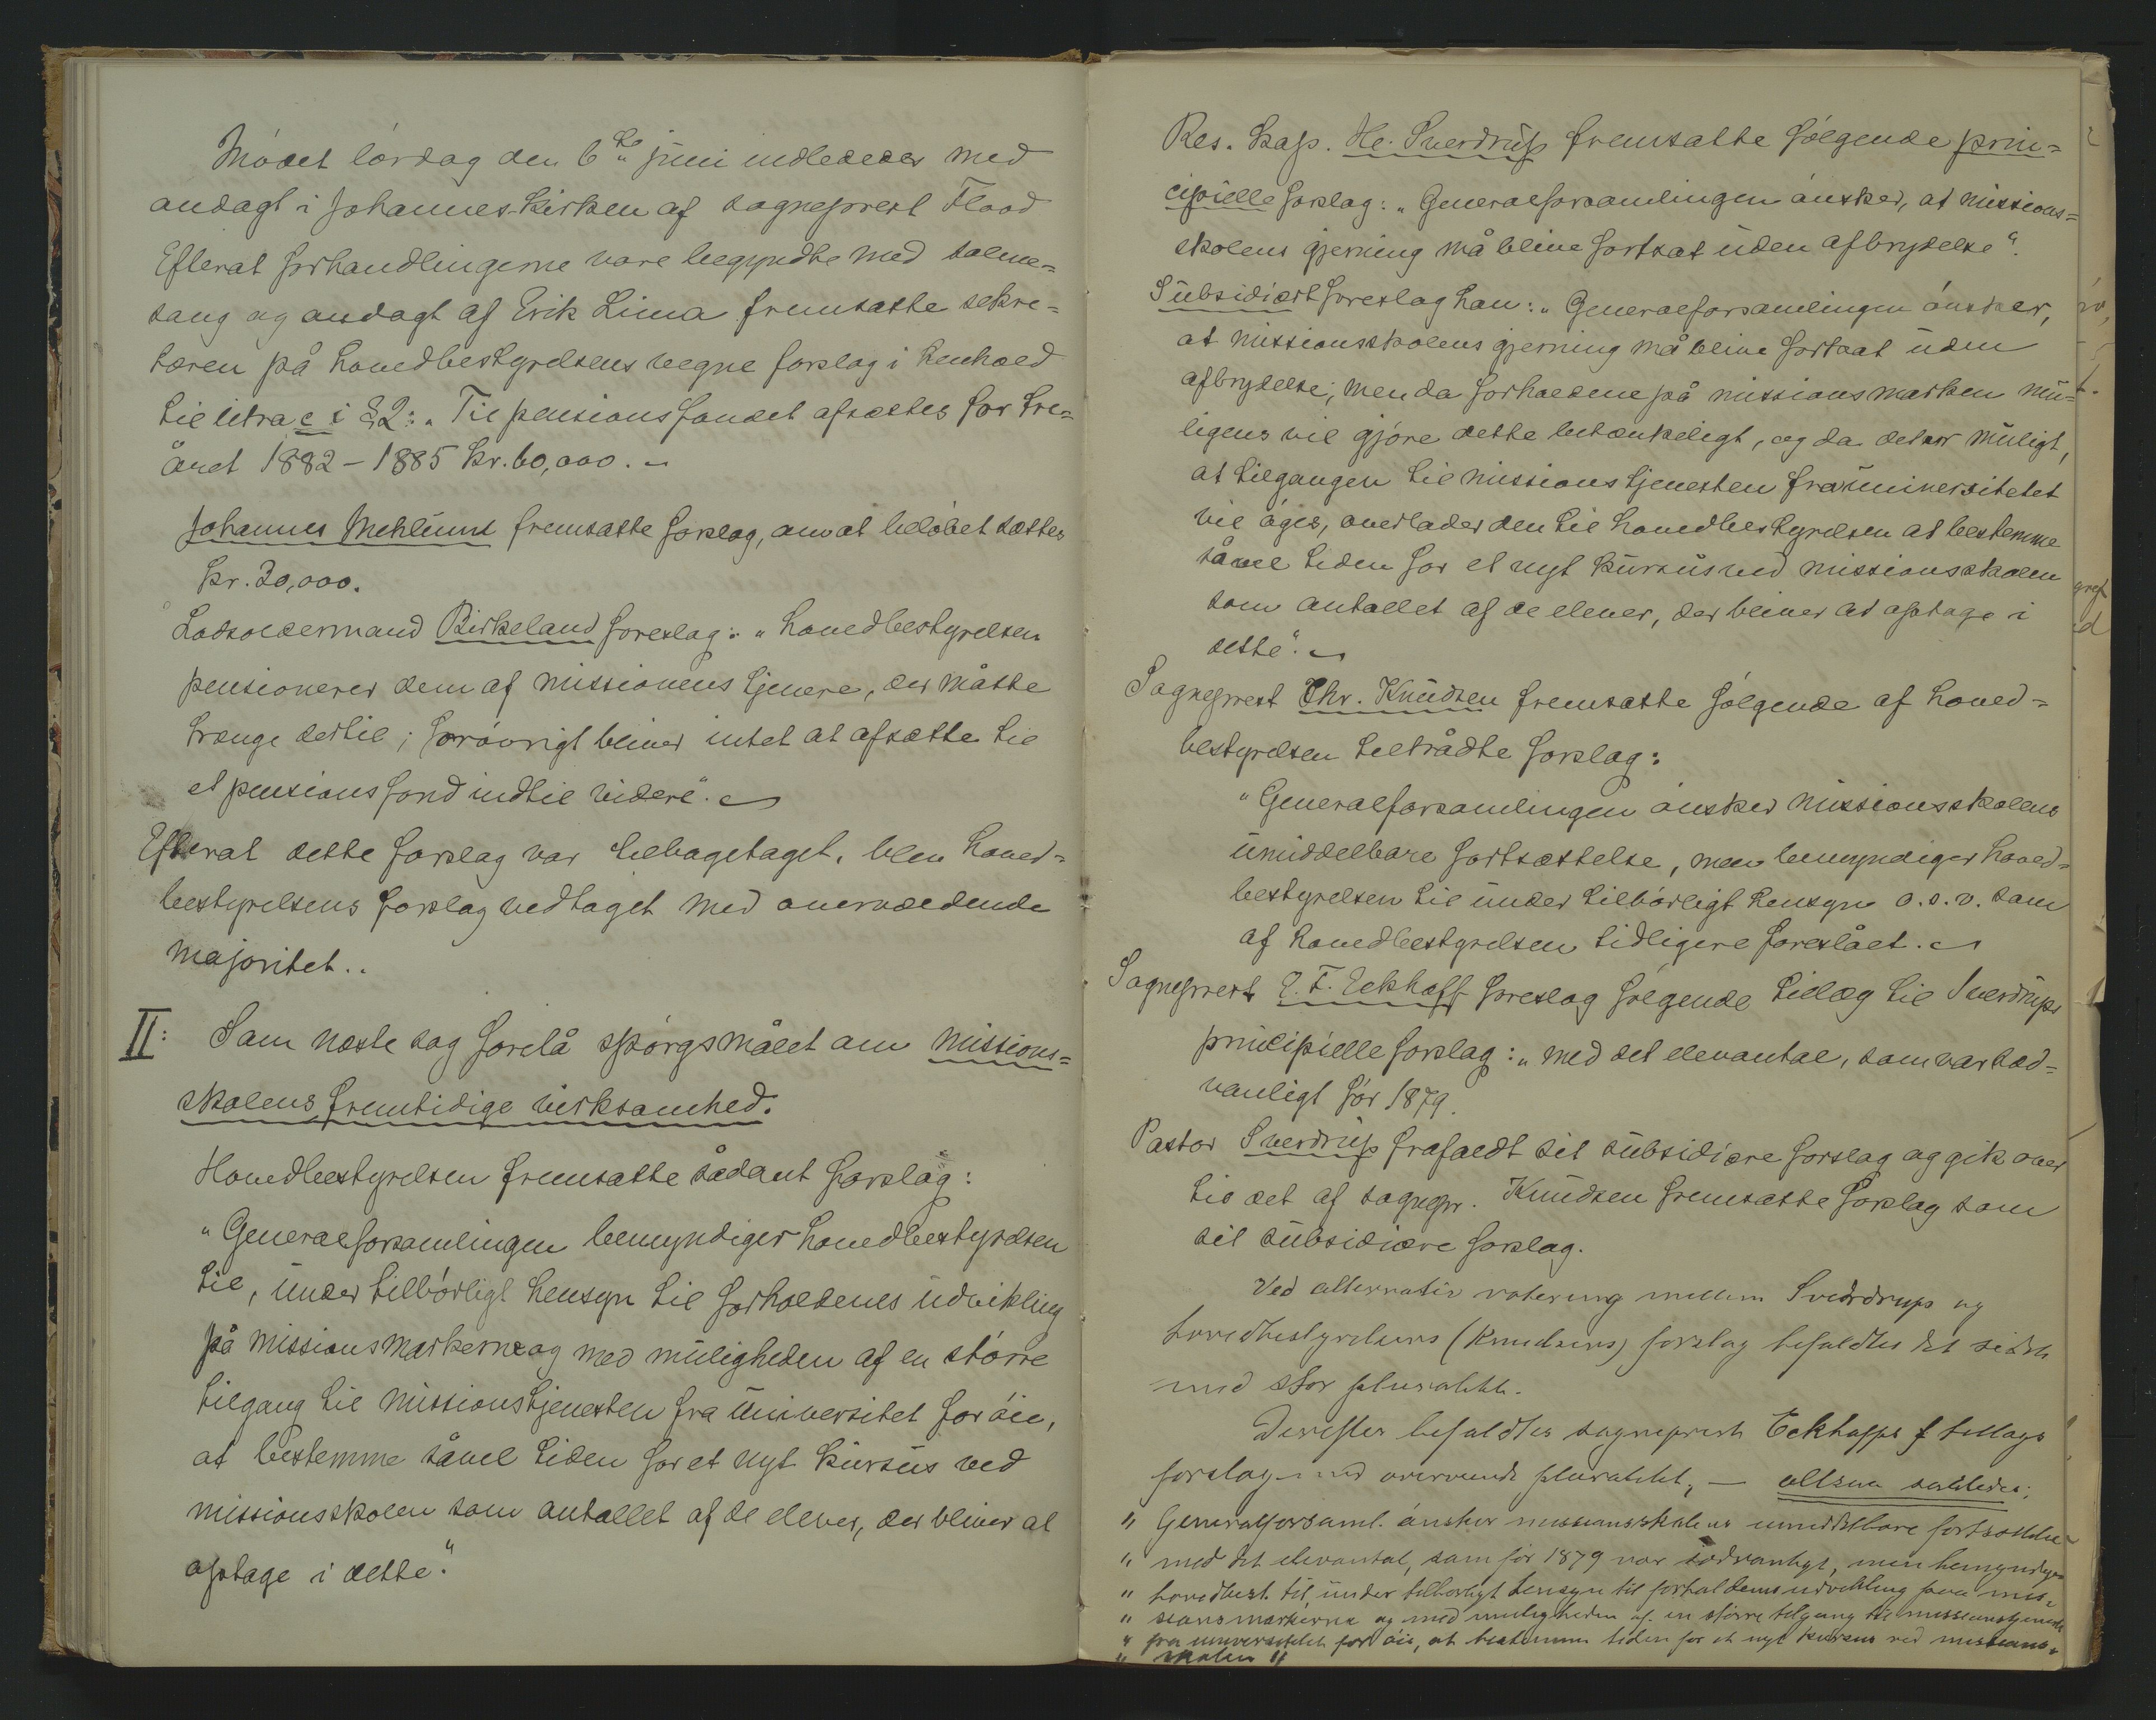 Mödet lördag den 6te juni indlededes med
andagt i Johannes-kirken af sogneprest Flood
Efterat forhandlingerne vare begyndte med salme=
sang og andagt af Erik Lima fremsatte sekre=
tæren på hovedbestyrelsens vegne forslag i henhold
til litra c i §2: „Til pensionsfondet afsættes for tre=
året 1882-1885 kr. 60,000.
Johannes Mehlum fremsatte forslag, om at belöbet sættes
kr. 30,000.
Lodsoldermand Birkeland foreslog: „Hovedbestyrelsen
pensionerer dem af missionens tjenere, der måtte
trænge dertil; forövrigt bliver intet at afsætte til
et pensionsfond indtil videre“.
Efterat dette forslag var tilbagetaget, blev hoved=
bestyrelsens forslag vedtaget med overvældende
majoritet..
II: Som næste sag forelå spörgsmålet om missions=
skolens fremtidige virksomhed.
Hovedbestyrelsen fremsatte sådant forslag:
„Generalforsamlingen bemyndiger hovedbestyrelsen
til, under tilbörligt hensyn til forholdenes udvikling
på missionsmarkerne og med muligheden af en större
tilgang til missionstjenesten fra universitet for öie,
at bestemme såvel tiden for et nyt kursus ved
missionsskolen som antallet af de elever, der bliver at
optage i dette“.
Res. kap. He. Sverdrup fremsatte fölgende prin=
cipielle forslag: „Generalforsamlingen önsker, at missions=
skolens gjerning må blive fortsat uden afbrydelse“.
Subsidiært foreslog han: „Generalforsamlingen önsker,
at missionsskolens gjerning må blive fortsat uden
afbrydelse; men da forholdene på missionsmarken mu=
ligens vil gjöre dette betænkeligt, og da det er muligt,
at tilgangen til missionstjenesten fra universitetet
vil öges, overlader den til hovedbestyrelsen at bestemme
såvel tiden for et nyt kursus ved missionsskolen
som antallet af de elever, der bliver at optage i
dette“.
Sogneprest Chr. Knudsen fremsatte fölgende af hoved=
bestyrelsen tiltrådte forslag:
„Generalforsamlingen önsker missionsskolens
umiddelbare fortsættelse, men bemyndiger hoved=
bestyrelsen til under tilbörligt hensyn o.s.v. som
af hovedbestyrelsen tidligere foreslået.
Sogneprest E. F. Eckhoff foreslog fölgende tillæg til Sverdrups
principielle forslag: „med det elevantal, som var sæd=
vanligt för 1879.
Pastor Sverdrup frafaldt sit subsidiære forslag og gik over
til det af sognepr. Knudsen fremsatte forslag som
sit subsidiære forslag.
Ved alternativ votering mellem Sverdrups og
hovedbestyrelsens (Knudsens) forslag befaldtes det sidste
med stor pluralitet.
Derefter befaldtes sogneprest Eckhoffs tillægs
forslag med overveiende pluralitet, — altsaa saaledes:
„ Generalforsaml. önsker missionsskolens umiddelbare fortsættelse
„ med det elevantal, som för 1879 var sædvanligt, men bemyndiger
„ hovedbest. til, under tilbörligt hensyn til forholdenes udvikling paa mis=
„ sionsmarkerne og med muligheden af en större tilgang til missionstjenesten
„ fra universitetet for öie, at bestemme tiden for et nyt kursus ved missions=
„ skolen“